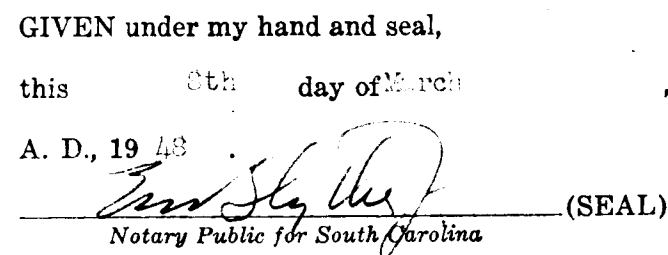 GIVEN under my hand and seal,
this 8th day of March ,
A. D., 1948 .
(SEAL)
Notary Public for South Carolina